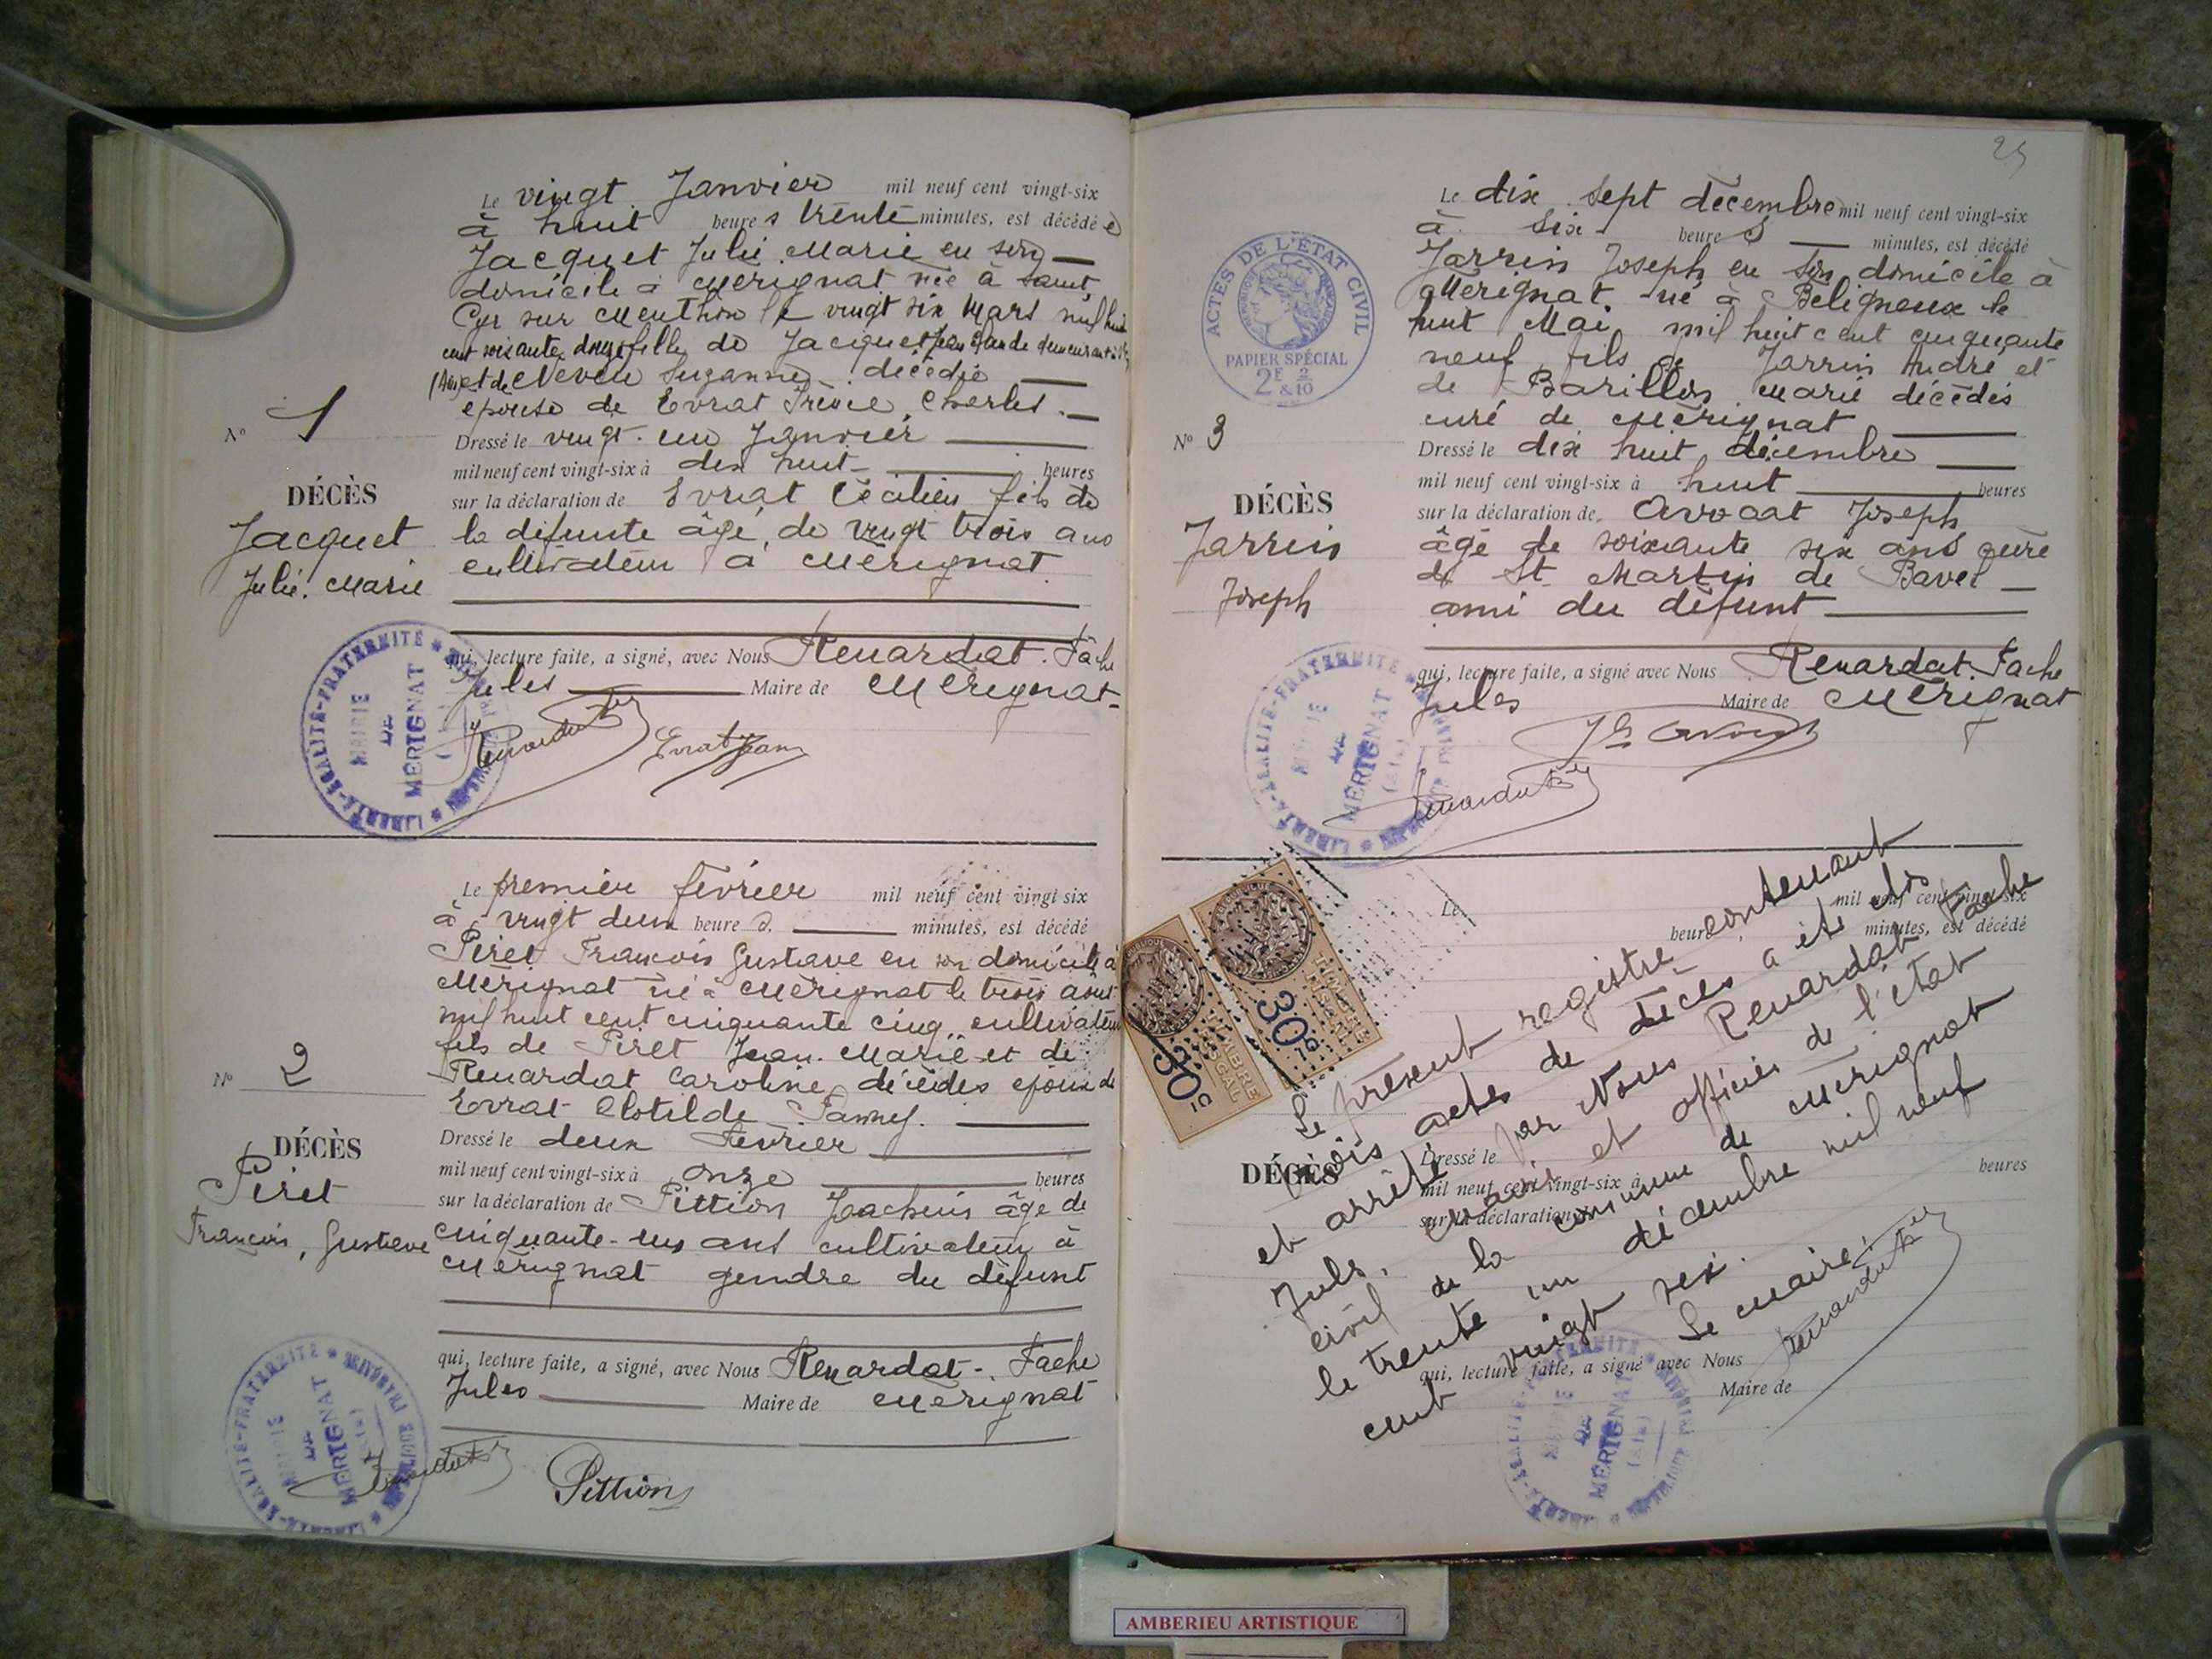 Le vingt Janvier mil neuf cent vingt-six
à huit heures trente minutes, est décédée
Jacquet Julie Marie en son
domicile à Mérignat née à Saint
Cyr sur Menthon le vingt six Mars mil huit
cent soixante douze fille de Jacquet Jean Claude demeurant à
(Ain) et de Neveu Suzanne décédée
épouse de Evrat Charles.
Dressé le vingt-un Janvier
mil neuf cent vingt-six à dix huit heures
sur la déclaration de Evrat Cécilien fils de
la défunte âgé de vingt trois ans
cultivateur à Mérignat
qui, lecture faite, a signé, avec Nous Renardat-Fache
Jules Maire de Mérignat
N° 1
DÉCÈS
Jacquet
Julie Marie
LIBERTÉ-ÉGALITÉ-FRATERNITÉ
MAIRIE
DE
MÉRIGNAT
Evrat Jean
Le premier février mil neuf cent vingt-six
à vingt deux heures minutes, est décédé
Piret François Gustave en son domicile à
Mérignat né à Mérignat le trois août
mil huit cent cinquante cinq, cultivateur
fils de Piret Jean-Marie et de
Renardat Caroline, décédés époux de
Evrat Clotilde Fanny.
Dressé le deux Février
mil neuf cent vingt-six à onze heures
sur la déclaration de Pittion Joachim âgé de
cinquante-un ans cultivateur à
Mérignat gendre du défunt
qui, lecture faite, a signé, avec Nous Renardat-Fache
Jules Maire de Mérignat
N° 2
DÉCÈS
Piret
François, Gustave
MAIRIE
DE
MÉRIGNAT
(Ain)
Pittion
25
Le dix sept décembre mil neuf cent vingt-six
à six heures minutes, est décédé
Jarrin Joseph en son domicile à
Mérignat né à Béligneux le
huit Mai mil huit cent cinquante
neuf fils de Jarrin André et
de Barillon Marie décédés
curé de Mérignat
Dressé le dix huit décembre
mil neuf cent vingt-six à huit heures
sur la déclaration de Avocat Joseph
âgé de soixante six ans curé
de St Martin de Bavel
ami du défunt
qui, lecture faite, a signé avec Nous Renardat-Fache
Jules Maire de Mérignat
ACTES DE L'ÉTAT CIVIL
PAPIER SPÉCIAL
2E 2/10
&10
N° 3
DÉCÈS
Jarrin
Joseph
MAIRIE
DE
MÉRIGNAT
(Ain)
Le mil neuf cent vingt-six
heure minutes, est décédé
DÉCÈS
Dressé le
mil neuf cent vingt-six à heures
sur la déclaration
qui, lecture faite, a signé avec Nous
Maire de
Le présent registre contenant
trois actes de décès a été clos
et arrêté par Nous Renardat Fache
Jules, Maire et officier de l'état
civil de la commune de Mérignat
le trente un décembre mil neuf
cent vingt six.
Le Maire:
TIMBRE
FISCAL
30c
TIMBRE
FISCAL
30c
MAIRIE
DE
MÉRIGNAT
(Ain)
AMBERIEU ARTISTIQUE